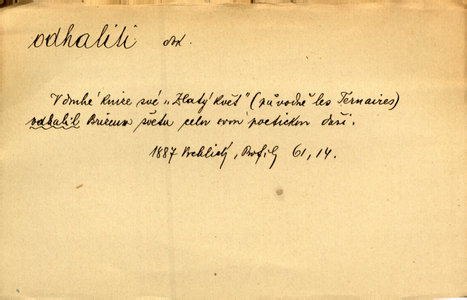 odhaliti dok.
V druhé knize své „Zlatý květ" (původně les Ternaires)
odhalil Brizeux světu celou svou poetickou duši.
1887 Vrchlický, Profily 61, 14.